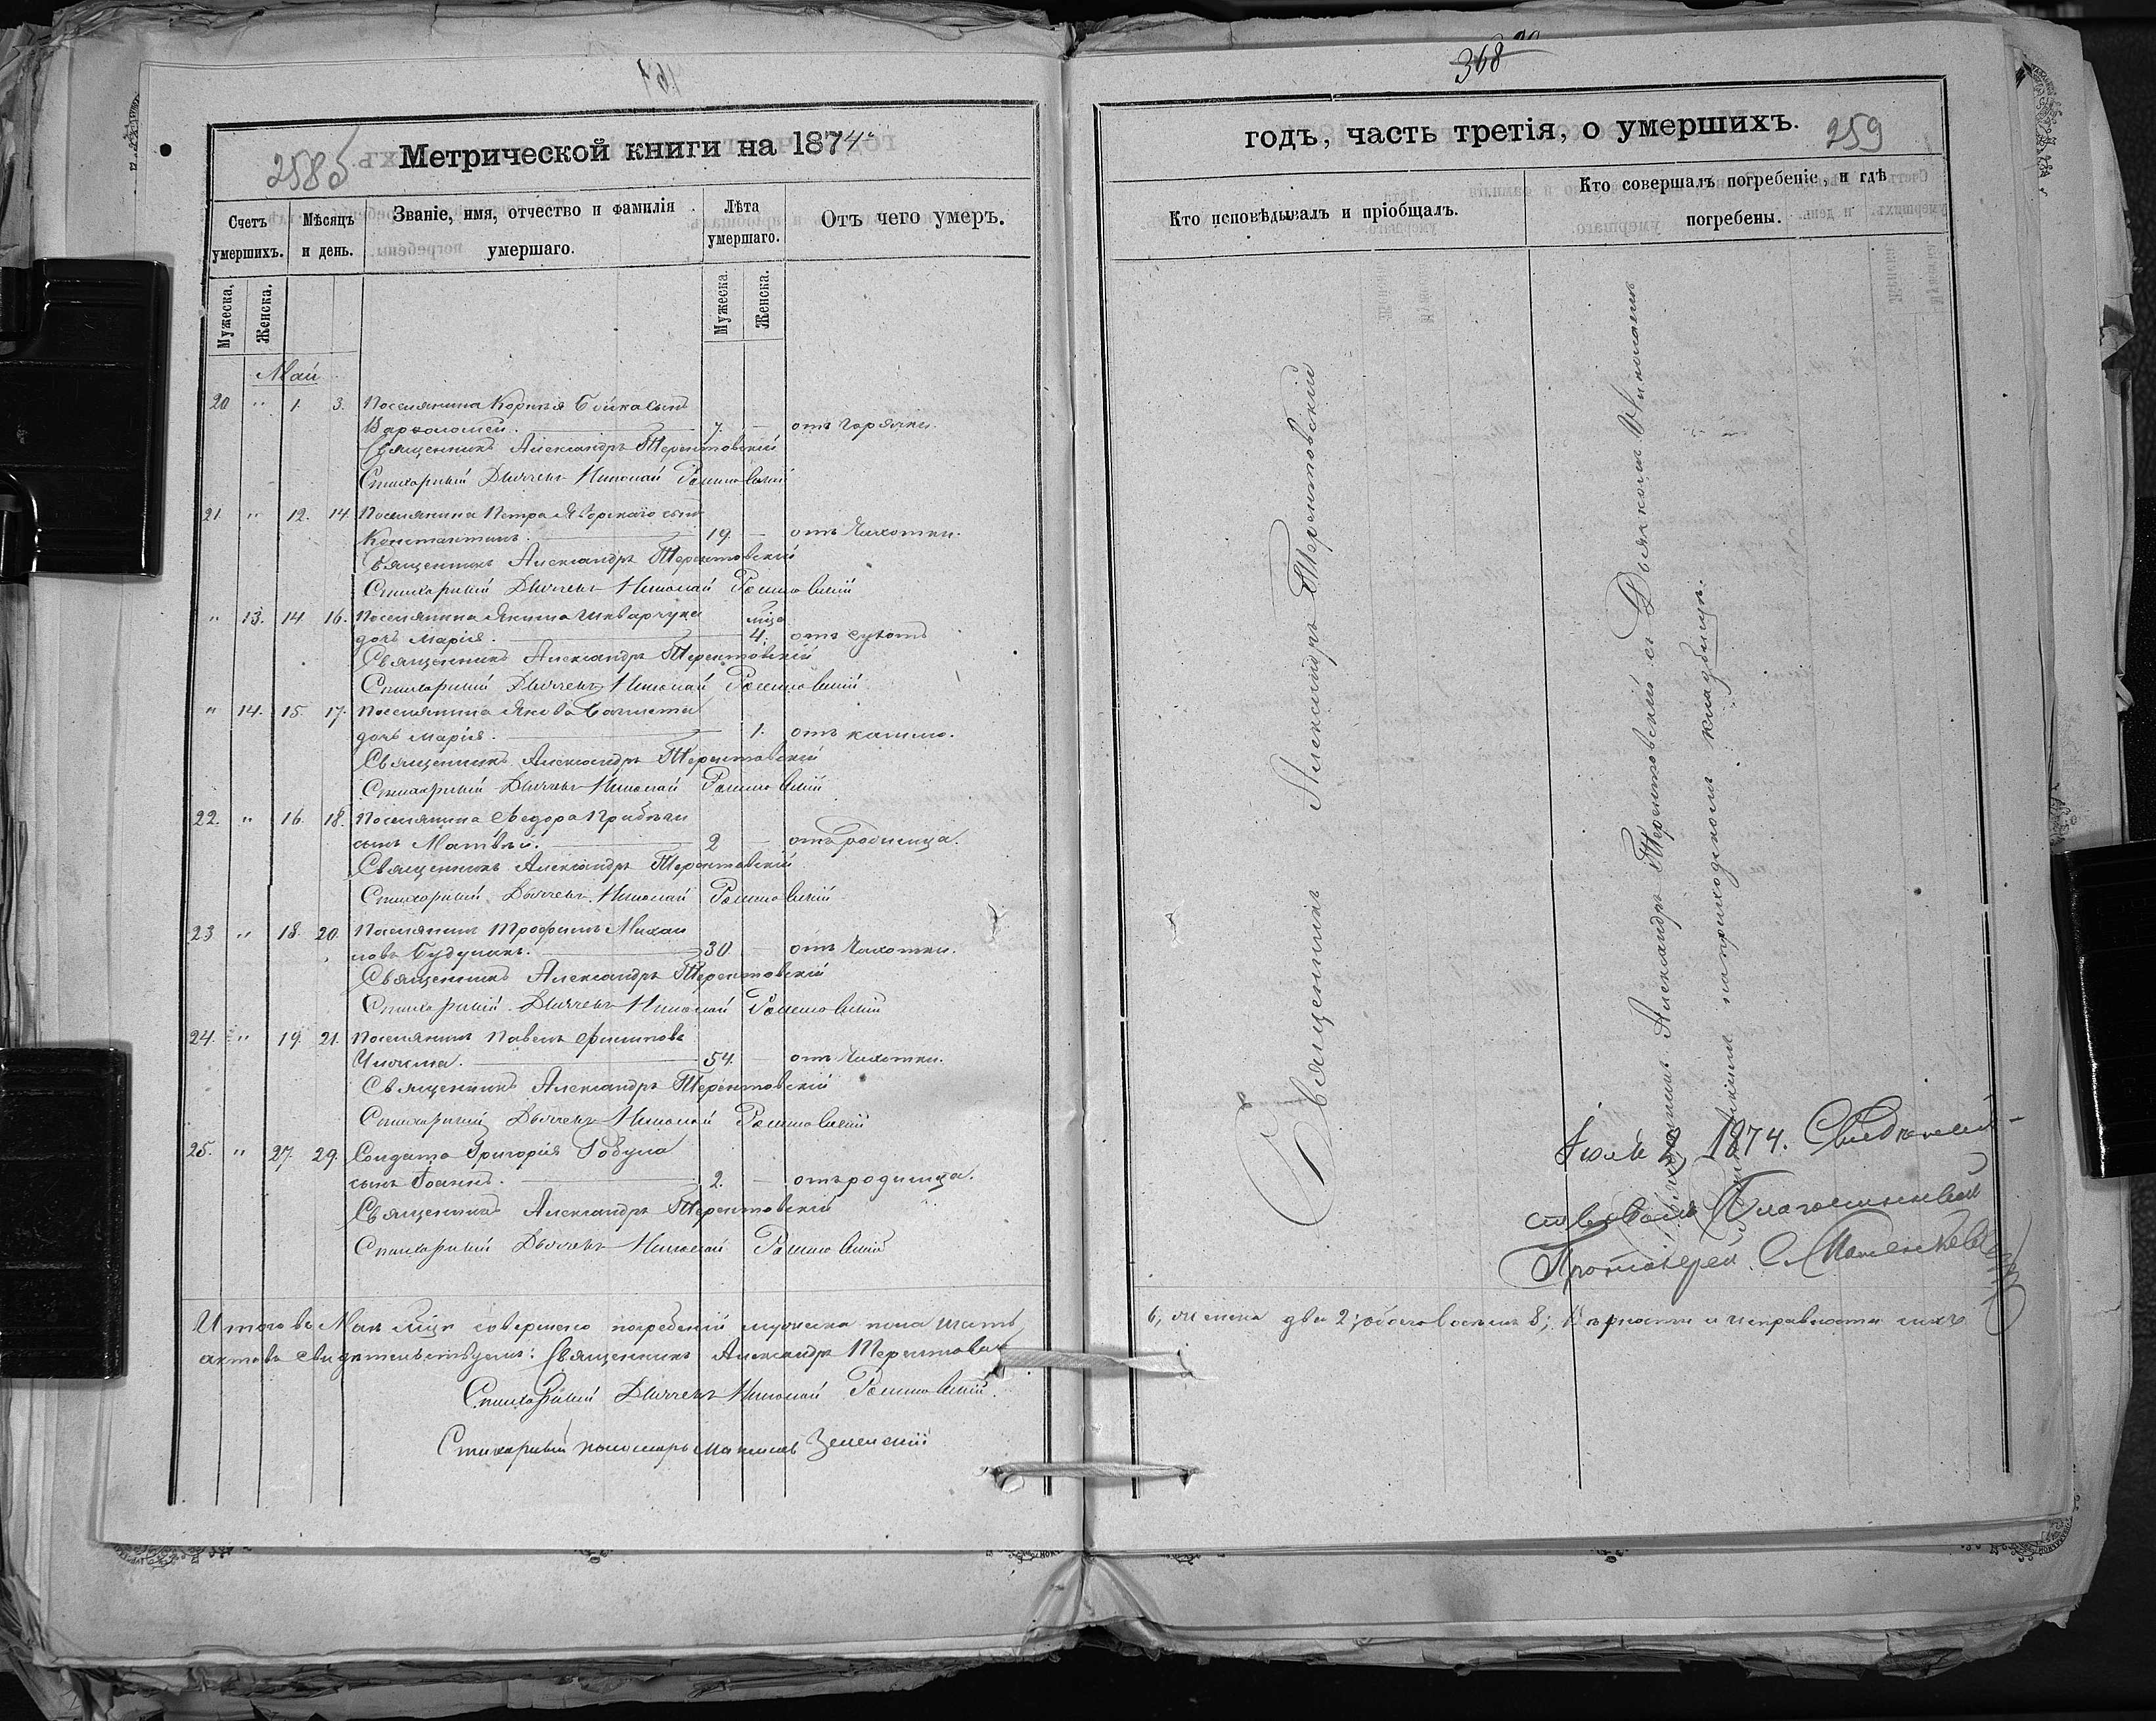 258б
Метрической книги на 1874
Счетъ умершихъ.
Мужеска.
Женска.
Мѣсяцъ и день.
Званіе, имя, отчество и фамилія умершаго.
Лѣта умершаго.
Мужеска.
Женска.
Отъ чего умеръ.
Май
20 " 1. 3. Поселянина Корнія Бойка сынъ
Варѳоломей. 7. — отъ горячки.
Священникъ Александръ Терентовскій
Стихарный Дьячекъ Николай
21. " 12. 14. Поселянина Петра Яворскаго сынъ
Константинъ. 19. — отъ чахотки.
Священникъ Александръ Терентовскій
Стихарный Дьячекъ Николай
" 13. 14. 16. Поселянина Якима Шкварчука мѣца
дочь Марія. 4. отъ сухотъ
Священникъ Александръ Терентовскій
Стихарный Дьячекъ Николай
" 14. 15. 17. Поселянина Якова
дочь Марія. 1. отъ кашлю.
Священникъ Александръ Терентовскій
Стихарный Дьячекъ Николай
22. " 16. 18. Поселянина Ѳедора
сынъ Матвѣй. 2 — отъ родимца.
Священникъ Александръ Терентовскій
Стихарный Дьячекъ Николай
23. " 18. 20. Поселянинъ Трофимъ Михаи
ловъ 30. — отъ чахотки.
Священникъ Александръ Терентовскій
Стихарный Дьячекъ Николай
24. " 19. 21. Поселянинъ Павелъ Филиповъ
54. — отъ чахотки.
Священникъ Александръ Терентовскій
Стихарный Дьячекъ Николай
25. " 27. 29. Солдата Григорія Робула
сынъ Іоаннъ. 2. — отъ родимца.
Священникъ Александръ Терентовскій
Стихарный Дьячекъ Николай
Итого въ Маѣ мѣцѣ совершено погребеній мужеска пола шесть
актовъ свидѣтельствуемъ: Священникъ Александръ Терентовскій
Стихарный Дьячекъ Николай
Стихарный пономарь Максимъ Зеленскій
368
годъ, часть третія, о умершихъ.
259
Кто исповѣдывалъ и пріобщалъ.
Кто совершалъ погребеніе, и гдѣ погребены.
Священникъ Александръ Терентовскій
Священникъ Александръ Терентовскій съ Дьячкомъ Николаемъ
на приходскомъ кладбищѣ.
1874. Свидѣтель-
ствовалъ Благочинный
Протоіерей
6, женска два 2; обоего восемь 8; Вѣрности и исправности сихъ